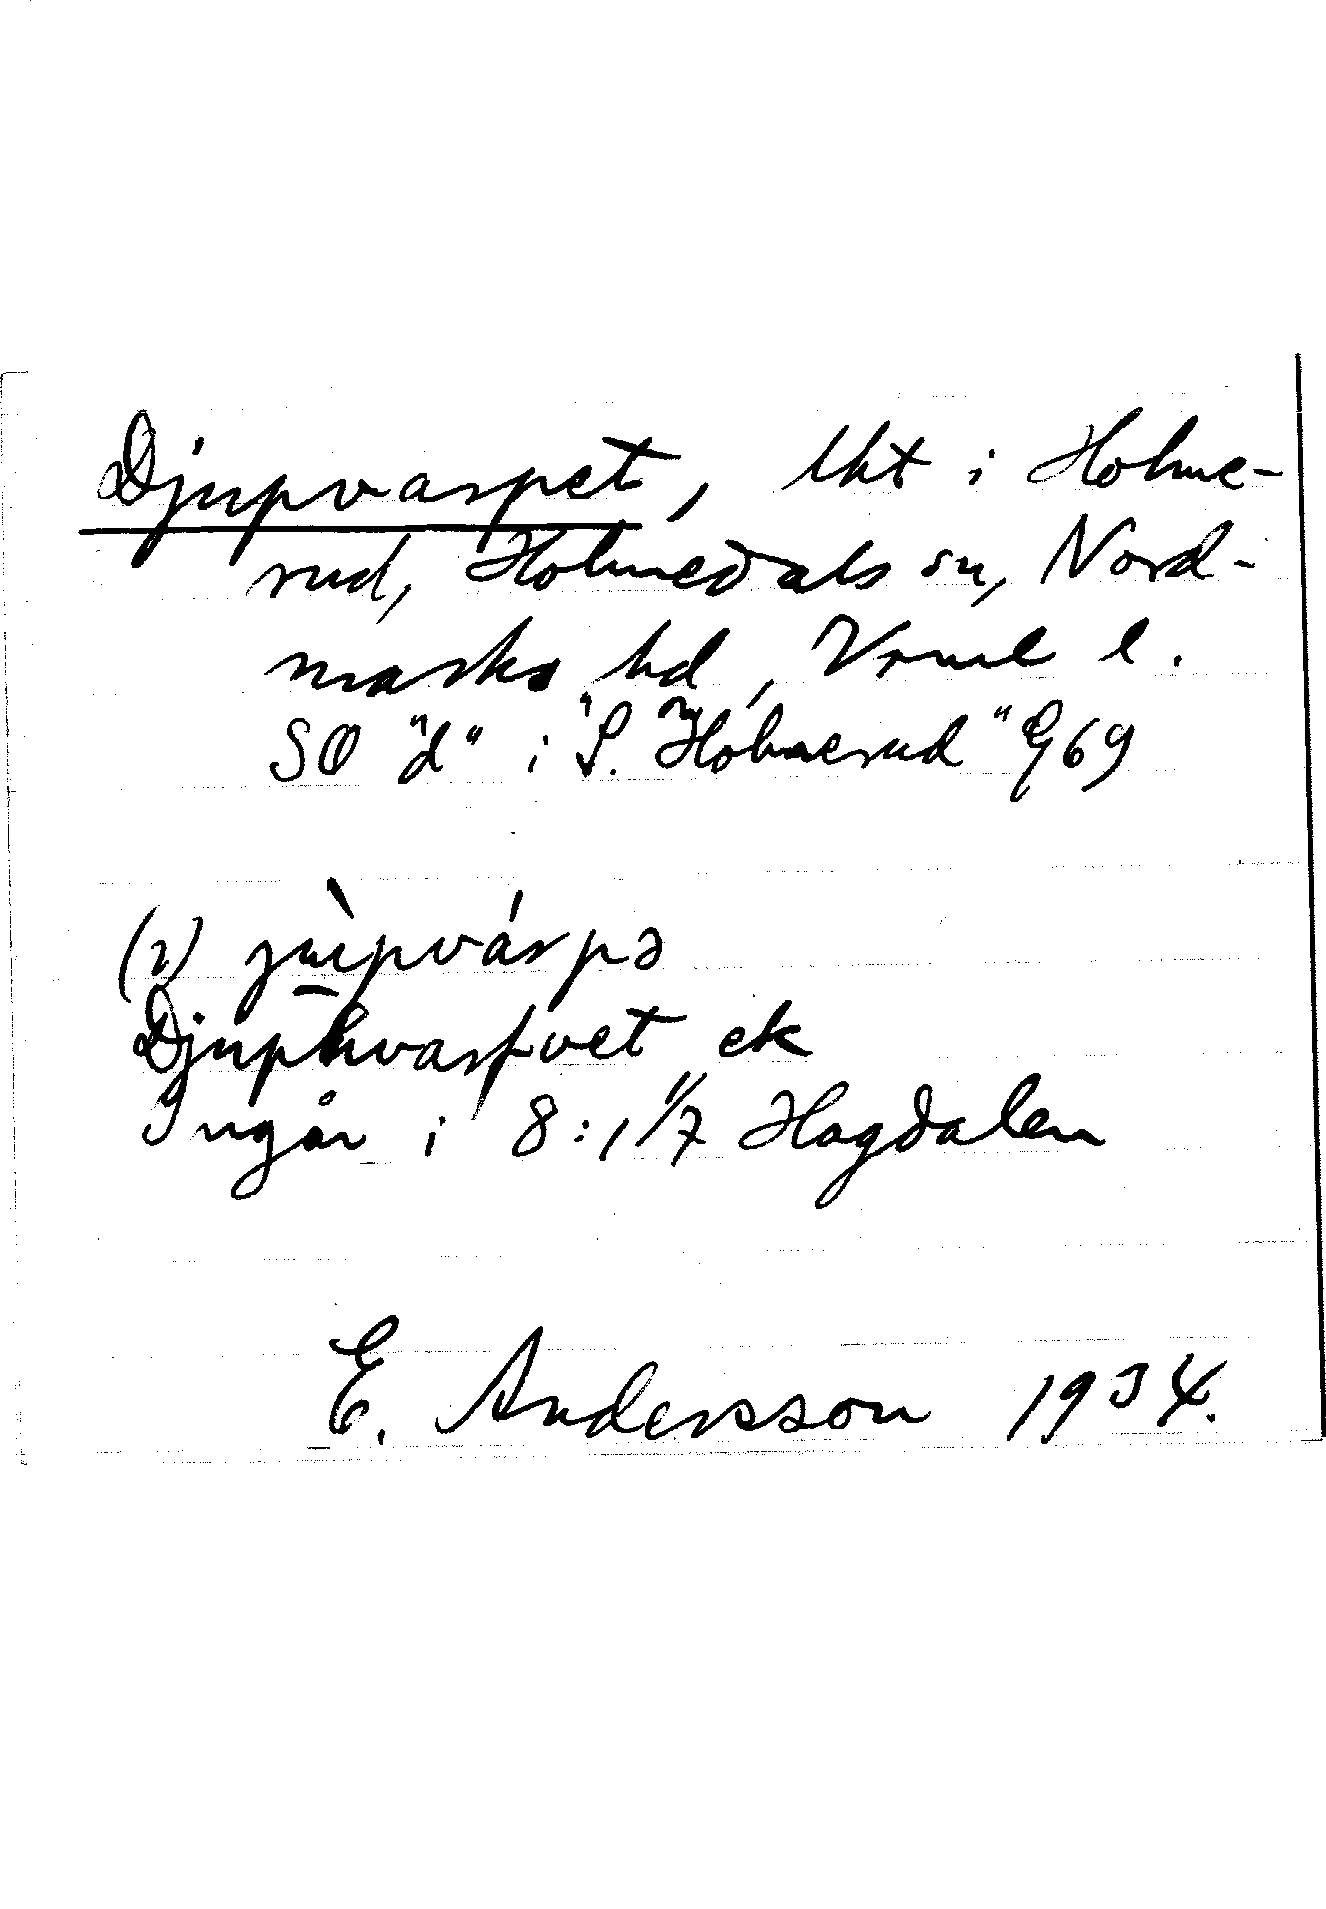 Djupvarpet, lht i Holme-
rud, Holmedals sn, Nord-
marks hd, Vrml l.
SO "d" i "S. Holmerud" G69
(i) jùpvárpə
Djuphvarfvet ek
Ingår i 8:1 1/7 Hagdalen
E. Andersson 1934.